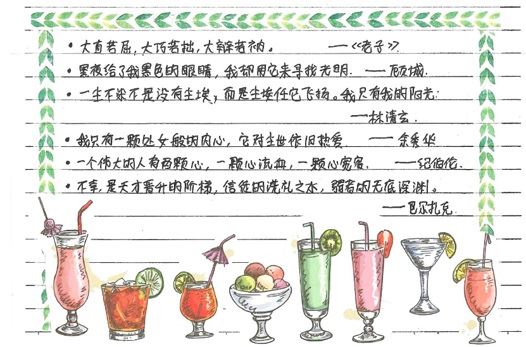 • 大直若屈，大巧若拙，大辩若讷。 ——《老子》
• 黑夜给了我黑色的眼睛，我却用它来寻找光明. ——顾城.
• 一尘不染不是没有尘埃，而是尘埃任它飞扬。我只有我的阳光.
——林清玄.
• 我只有一颗处女般的内心，它对尘世依旧热爱. ——余秀华
• 一个伟大的人有两颗心，一颗心流血，一颗心宽容. ——纪伯伦.
• 不幸，是天才晋升的阶梯，信徒的洗礼之水，弱者的无底深渊。
——巴尔扎克.